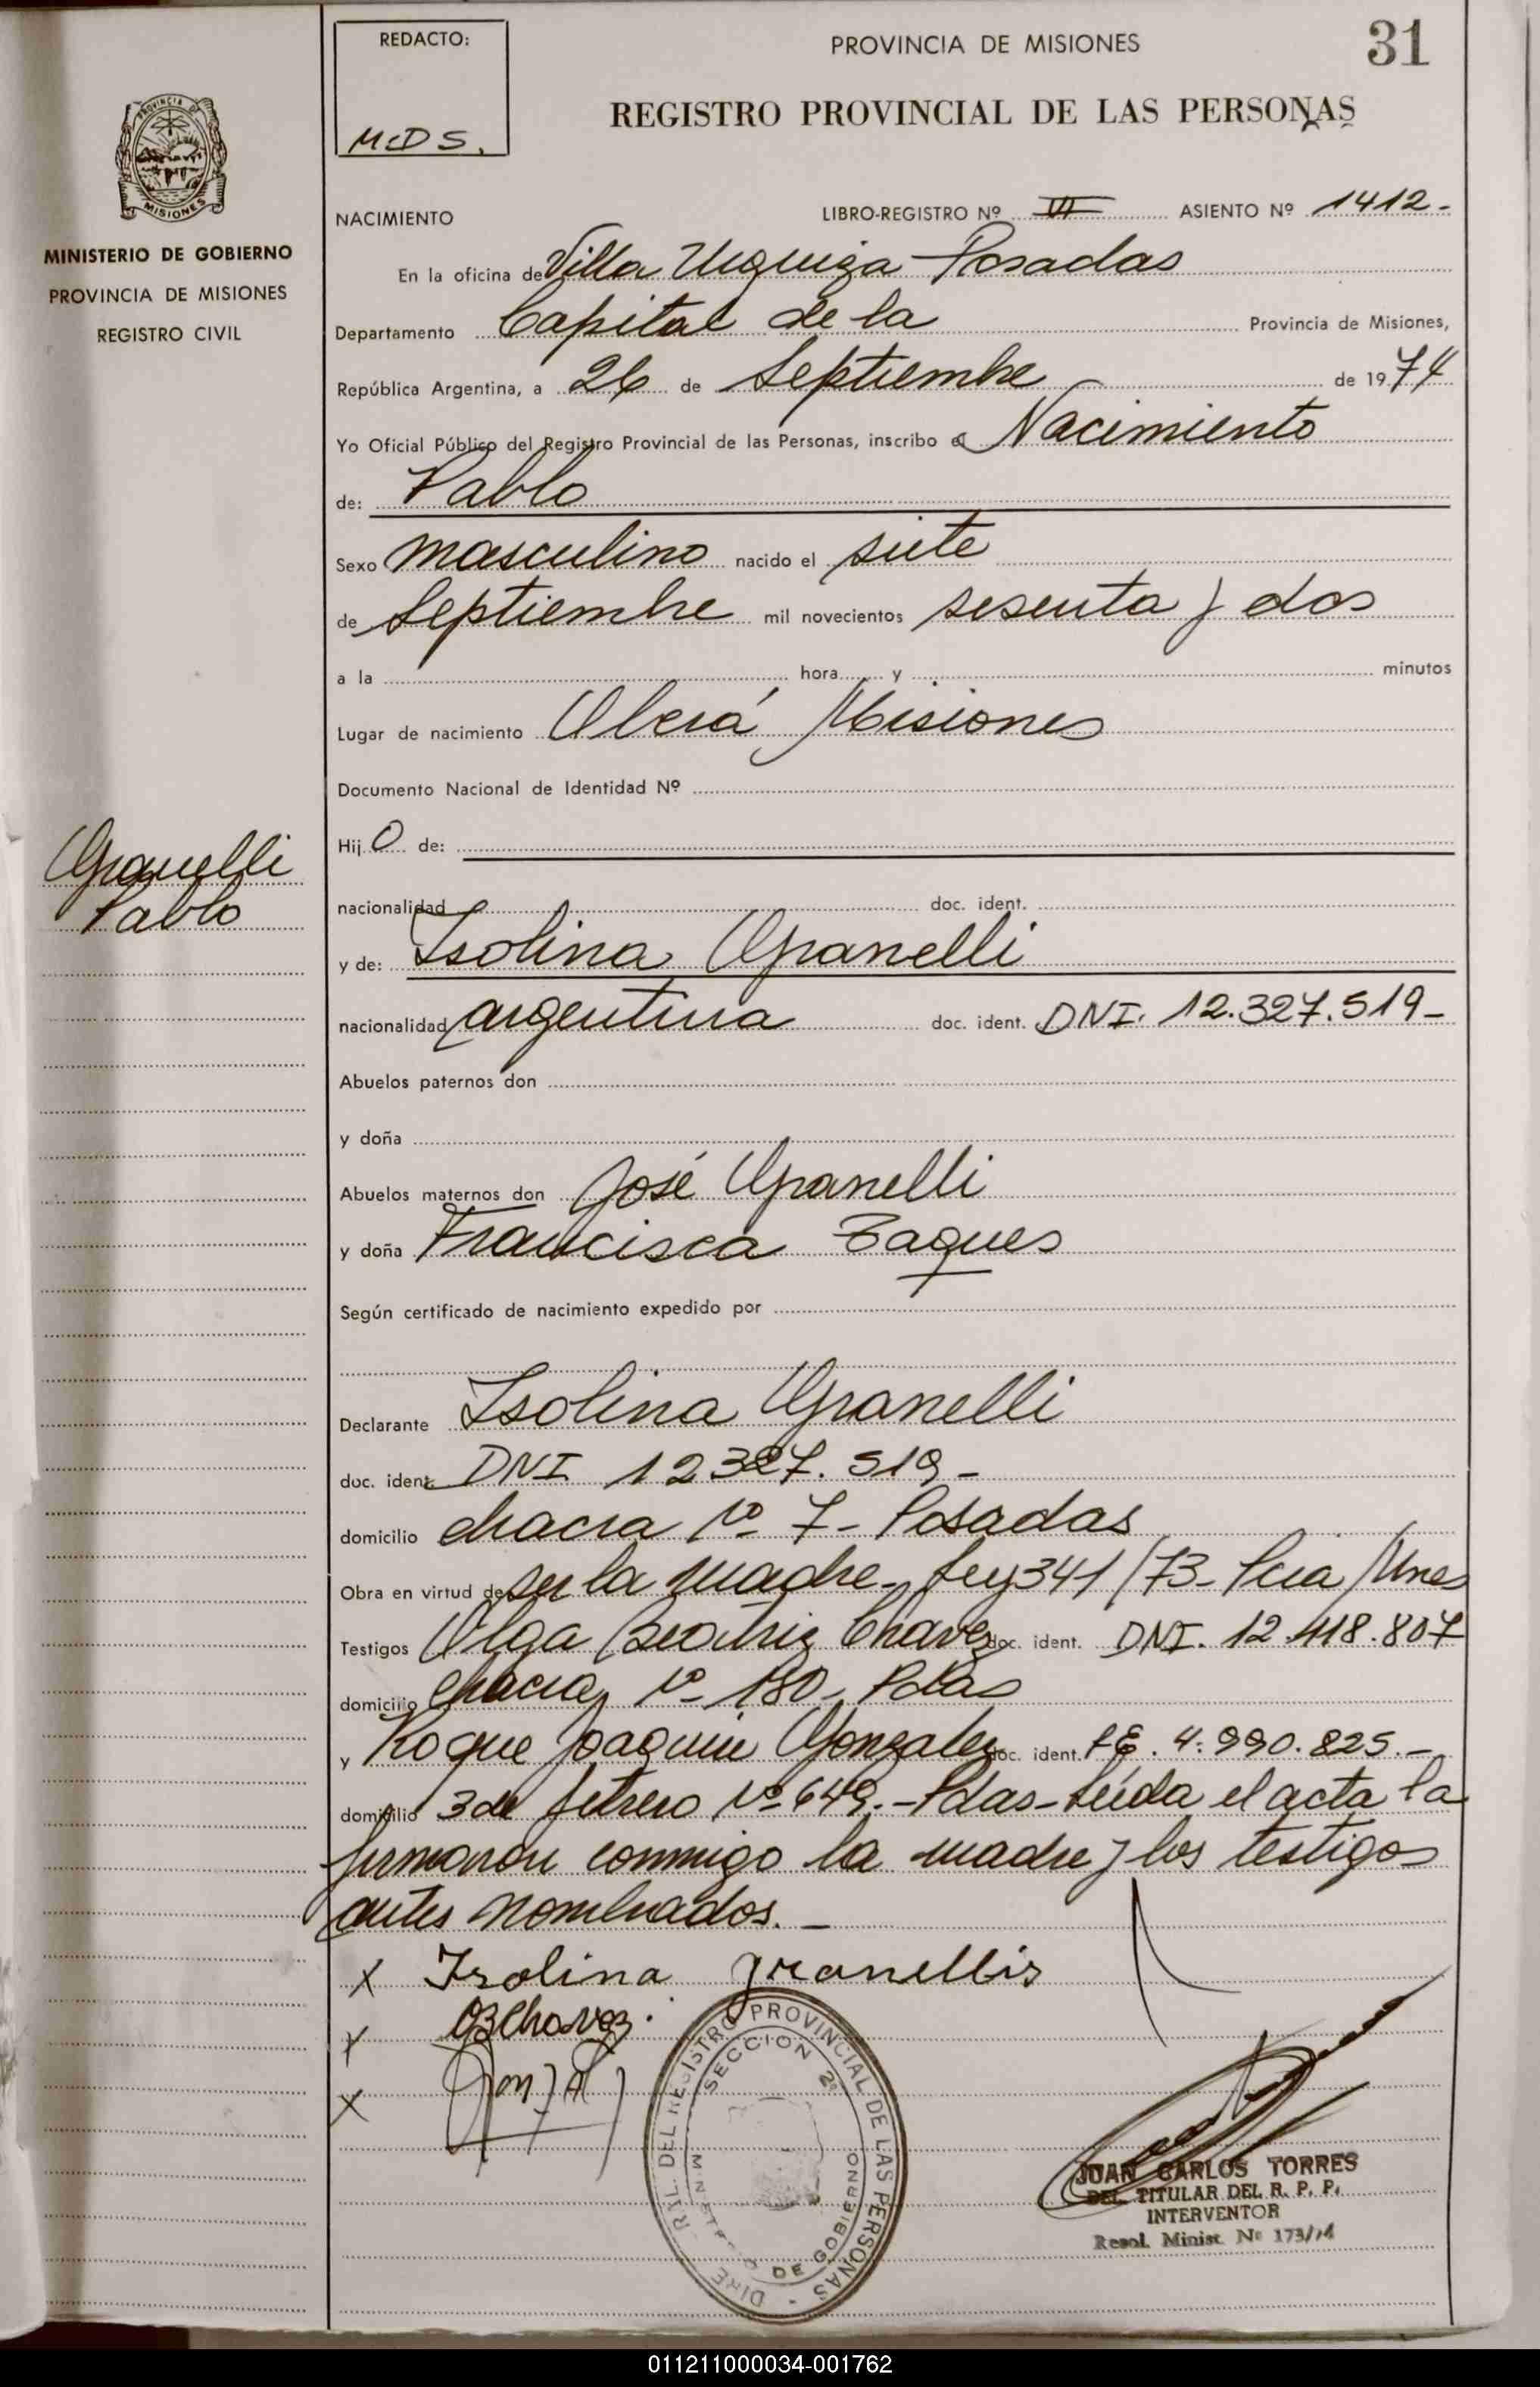 REDACTO:
MDS.
PROVINCIA DE MISIONES
31
REGISTRO PROVINCIAL DE LAS PERSONAS
PROVINCIA DE
MISIONES
MINISTERIO DE GOBIERNO
PROVINCIA DE MISIONES
REGISTRO CIVIL
NACIMIENTO LIBRO-REGISTRO Nº VI ASIENTO Nº 1412-
En la oficina de Villa Urquiza - Posadas
Departamento Capital de la Provincia de Misiones,
República Argentina, a 26 de Septiembre de 1974
Yo Oficial Público del Registro Provincial de las Personas, inscribo el Nacimiento
de: Pablo
Sexo masculino nacido el siete
de Septiembre mil novecientos sesenta y dos
a la hora y minutos
Lugar de nacimiento Oberá Misiones
Documento Nacional de Identidad Nº
Hij o de:
Granelli
Pablo
nacionalidad doc. ident.
y de: Isolina Granelli
nacionalidad argentina doc. ident. DNI. 12.327.519-
Abuelos paternos don
y doña
Abuelos maternos don José Granelli
y doña Francisca Baques
Según certificado de nacimiento expedido por
Declarante Isolina Granelli
doc. ident. DNI 12327.519-
domicilio chacra Nº 7- Posadas
Obra en virtud de ser la madre- Ley 341/73- Pcia Mnes
Testigos Olga Beatriz Chavez doc. ident. DNI. 12.418.807
domicilio Chacra Nº 180- Pdas
y Roque Joaquin Gonzalez doc. ident. LE. 4.990.825.-
domicilio 3 de febrero Nº 649.- Pdas- Leída el acta la
firmaron conmigo la madre y los testigos
antes nombrados.-
x Isolina granellis
x OBChavez.
x
DIRE RAL. DEL REGISTRO PROVINCIAL DE LAS PERSONAS -
SECCION 2ª
MINISTERIO DE GOBIERNO
JUAN CARLOS TORRES
DEL. TITULAR DEL R. P. P.
INTERVENTOR
Resol. Minist. Nº 173/74
011211000034-001762